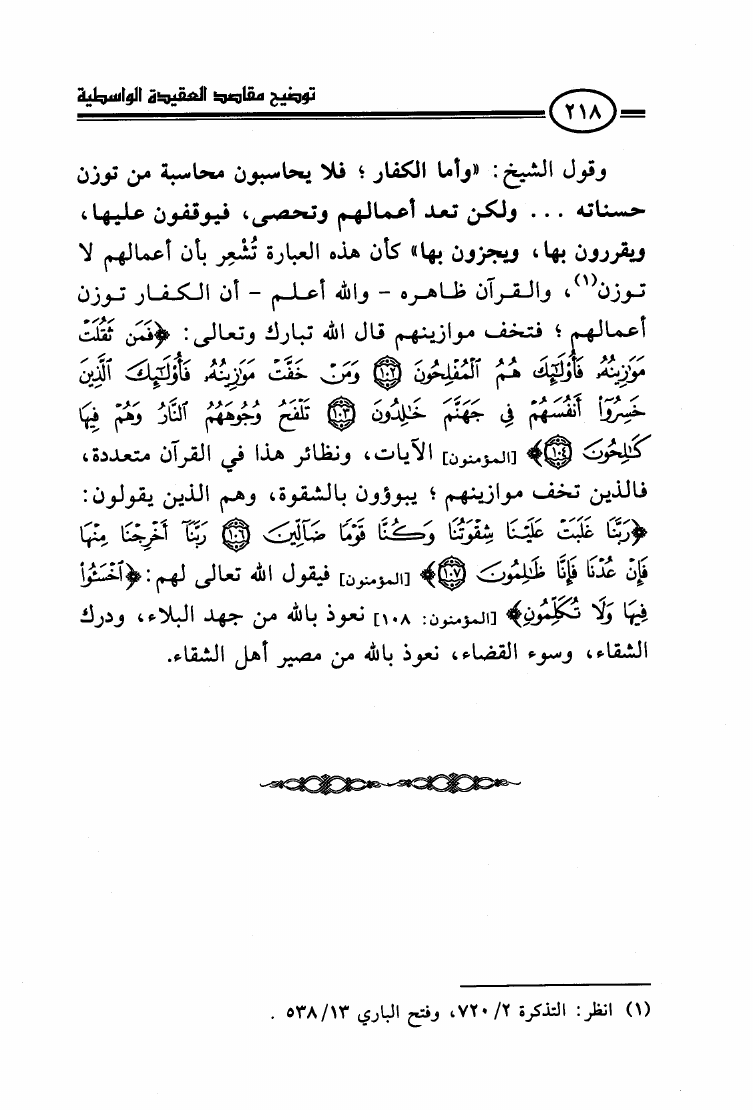 توضيح مقاصد العقيدة الواسطية
٢١٨
وقول الشيخ: «وأما الكفار ؛ فلا يحاسبون محاسبة من توزن
حسناته ... ولكن تعد أعمالهم وتحصى، فيوقفون عليها،
ويقررون بها، ويجزون بها» كأن هذه العبارة تُشْعِر بأن أعمالهم لا
توزن(١)، والقرآن ظاهره - والله أعلم - أن الكفار توزن
أعمالهم ؛ فتخف موازينهم قال الله تبارك وتعالى: ﴿فَمَن ثَقُلَتْ
مَوَٰزِينُهُۥ فَأُو۟لَٰٓئِكَ هُمُ ٱلْمُفْلِحُونَ ١٠٢ وَمَنْ خَفَّتْ مَوَٰزِينُهُۥ فَأُو۟لَٰٓئِكَ ٱلَّذِينَ
خَسِرُوٓا۟ أَنفُسَهُمْ فِى جَهَنَّمَ خَٰلِدُونَ ١٠٣ تَلْفَحُ وُجُوهَهُمُ ٱلنَّارُ وَهُمْ فِيهَا
كَٰلِحُونَ ١٠٤﴾ [المؤمنون] الآيات، ونظائر هذا في القرآن متعددة،
فالذين تخف موازينهم ؛ يبوؤون بالشقوة، وهم الذين يقولون:
﴿رَبَّنَا غَلَبَتْ عَلَيْنَا شِقْوَتُنَا وَكُنَّا قَوْمًا ضَآلِّينَ ١٠٦ رَبَّنَآ أَخْرِجْنَا مِنْهَا
فَإِنْ عُدْنَا فَإِنَّا ظَٰلِمُونَ ١٠٧﴾ [المؤمنون] فيقول الله تعالى لهم: ﴿ٱخْسَـُٔوا۟
فِيهَا وَلَا تُكَلِّمُونِ﴾ [المؤمنون: ١٠٨] نعوذ بالله من جهد البلاء، ودرك
الشقاء، وسوء القضاء، نعوذ بالله من مصير أهل الشقاء.
(١) انظر: التذكرة ٧٢٠/٢، وفتح الباري ٥٣٨/١٣ .